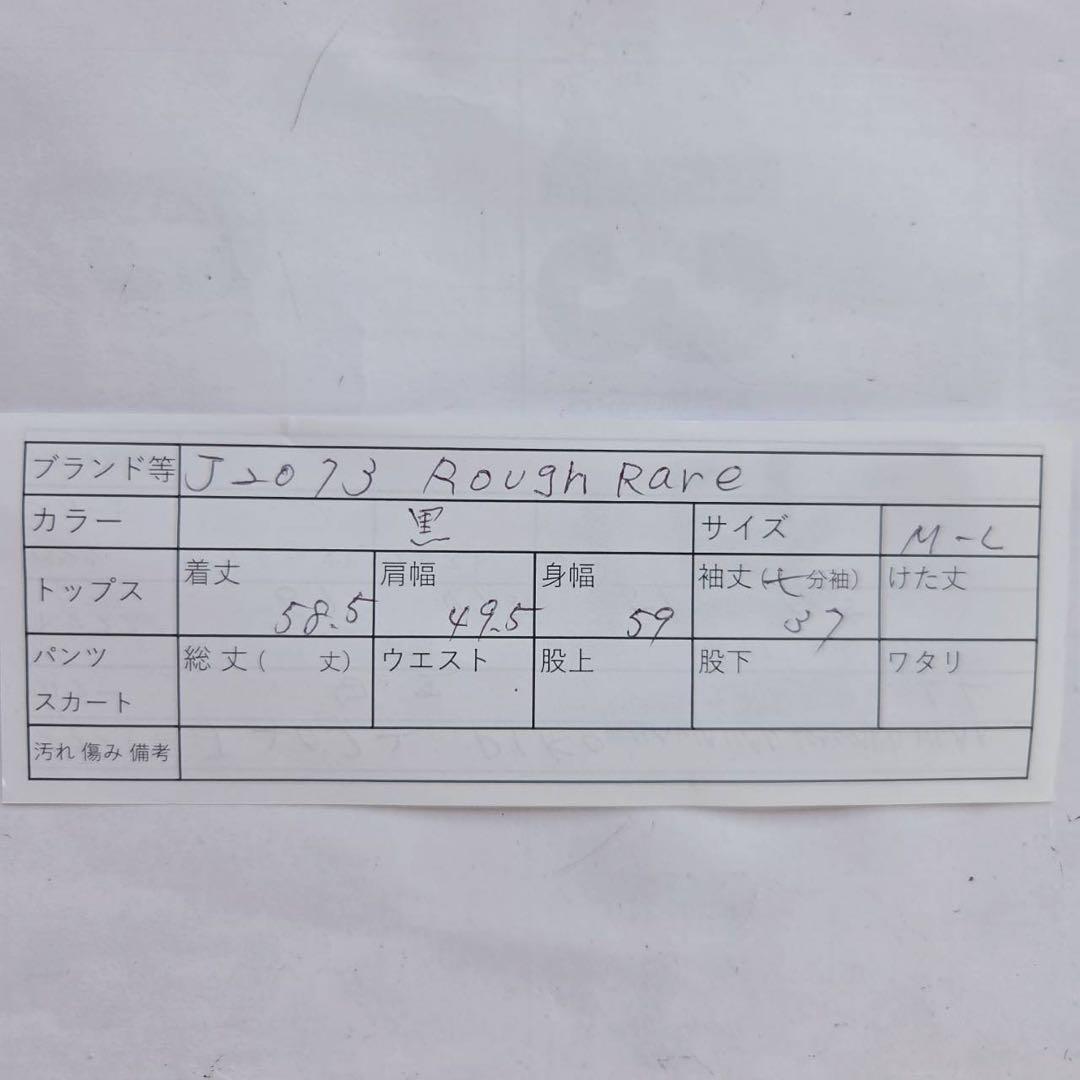 ブランド等 J2073 Rough Rare
カラー 黒 サイズ M-L
トップス 着丈 58.5 肩幅 49.5 身幅 59 袖丈(七分袖) 37 けた丈
パンツ スカート 総丈( 丈) ウエスト 股上 股下 ワタリ
汚れ 傷み 備考